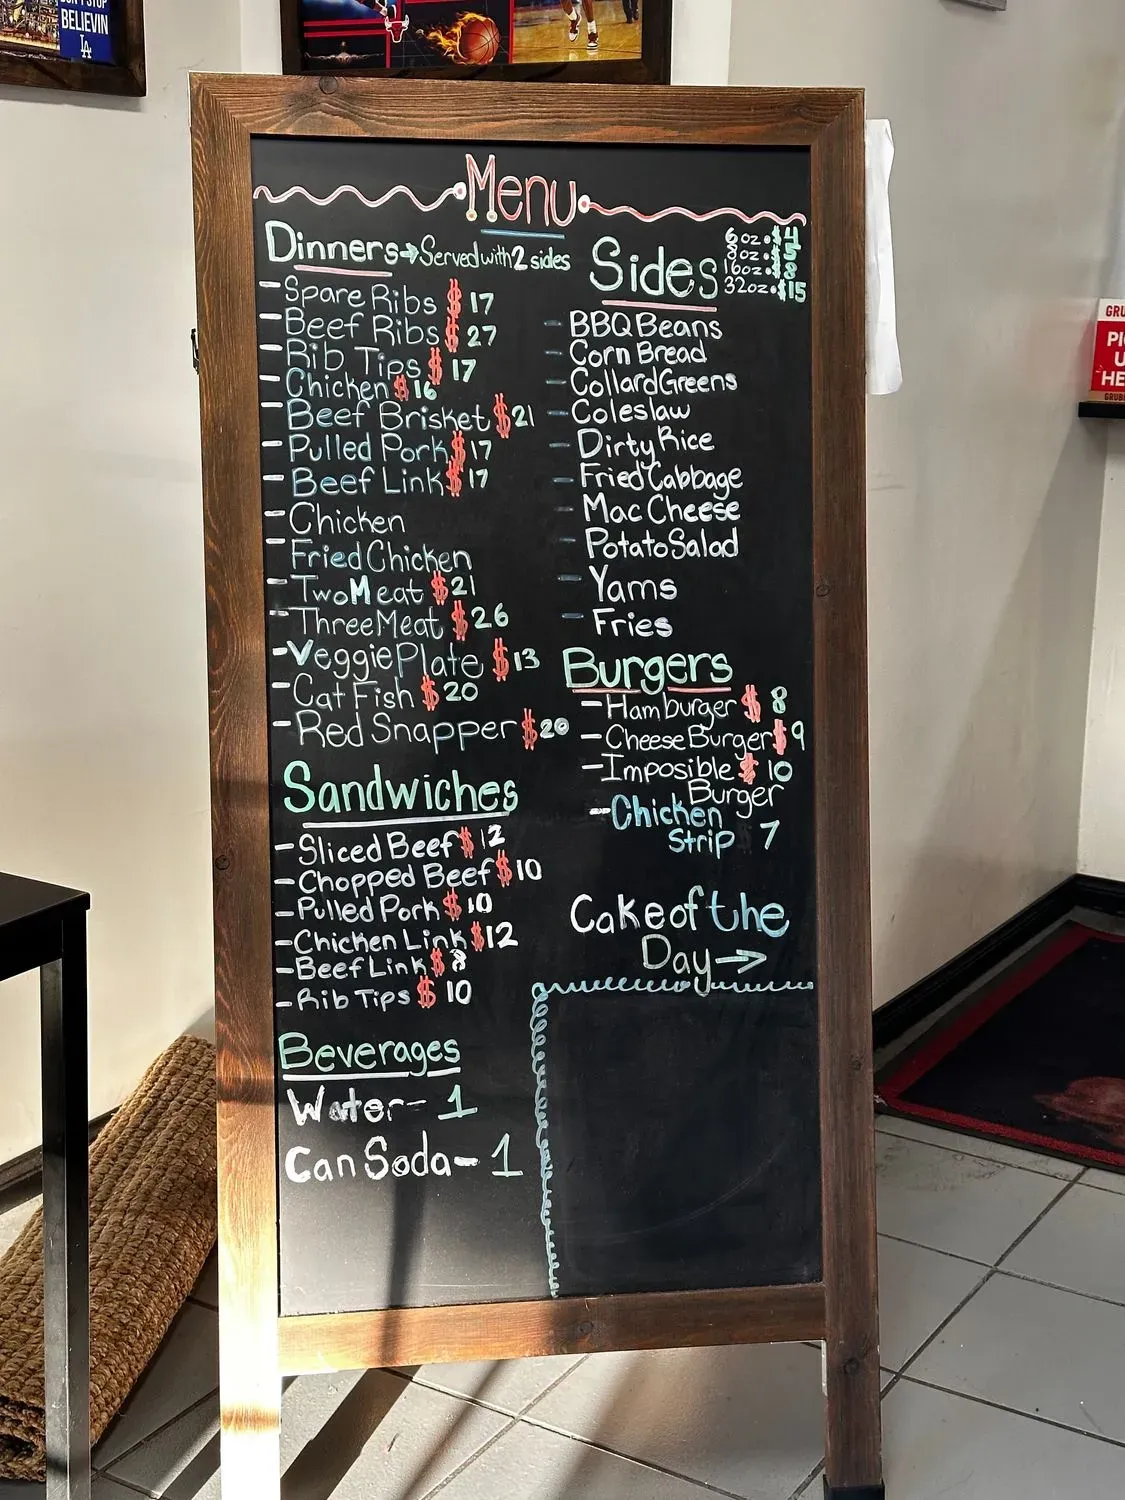 DON'T STOP
BELIEVIN
LA
Menu
Dinners → Served with 2 sides
- Spare Ribs $17
- Beef Ribs $27
- Rib Tips $17
- Chicken $16
- Beef Brisket $21
- Pulled Pork $17
- Beef Link $17
- Chicken
- Fried Chicken
- Two Meat $21
- Three Meat $26
- Veggie Plate $13
- Cat Fish $20
- Red Snapper $20
Sandwiches
- Sliced Beef $12
- Chopped Beef $10
- Pulled Pork $10
- Chicken Link $12
- Beef Link $8
- Rib Tips $10
Beverages
Water - 1
Can Soda - 1
Sides
6oz. $4
8oz. $5
16oz. $8
32oz. $15
- BBQ Beans
- Corn Bread
- Collard Greens
- Coleslaw
- Dirty Rice
- Fried Cabbage
- Mac Cheese
- Potato Salad
- Yams
- Fries
Burgers
- Hamburger $8
- Cheese Burger $9
- Imposible $10
Burger
- Chicken
Strip 7
Cake of the
Day →
GRU
PI
U
HE
GRUB